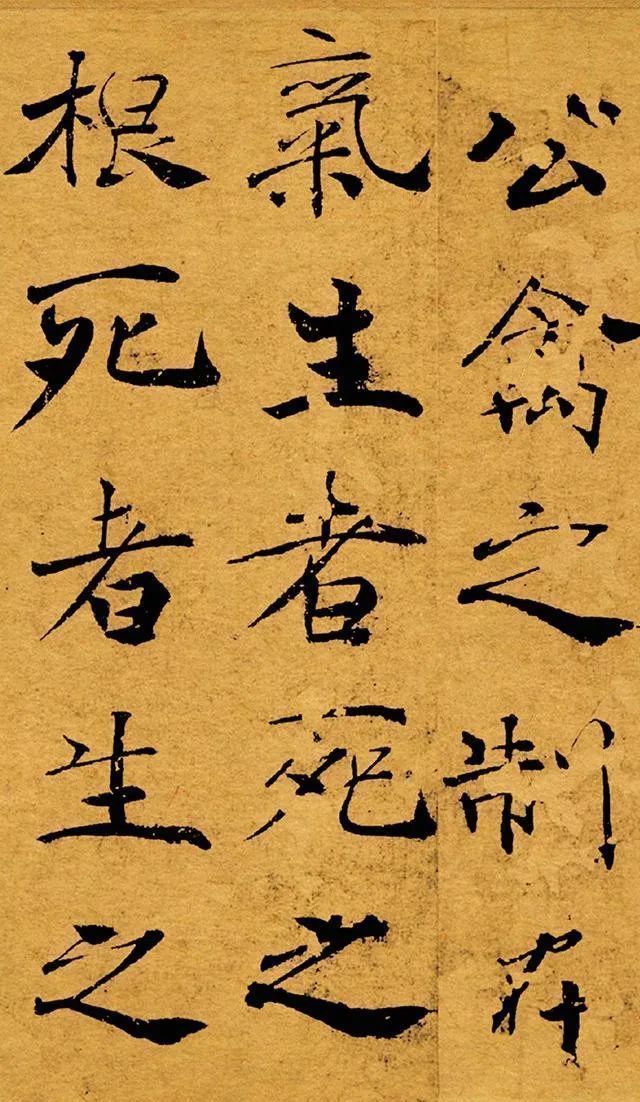 公禽之制在
氣生者死之
根死者生之